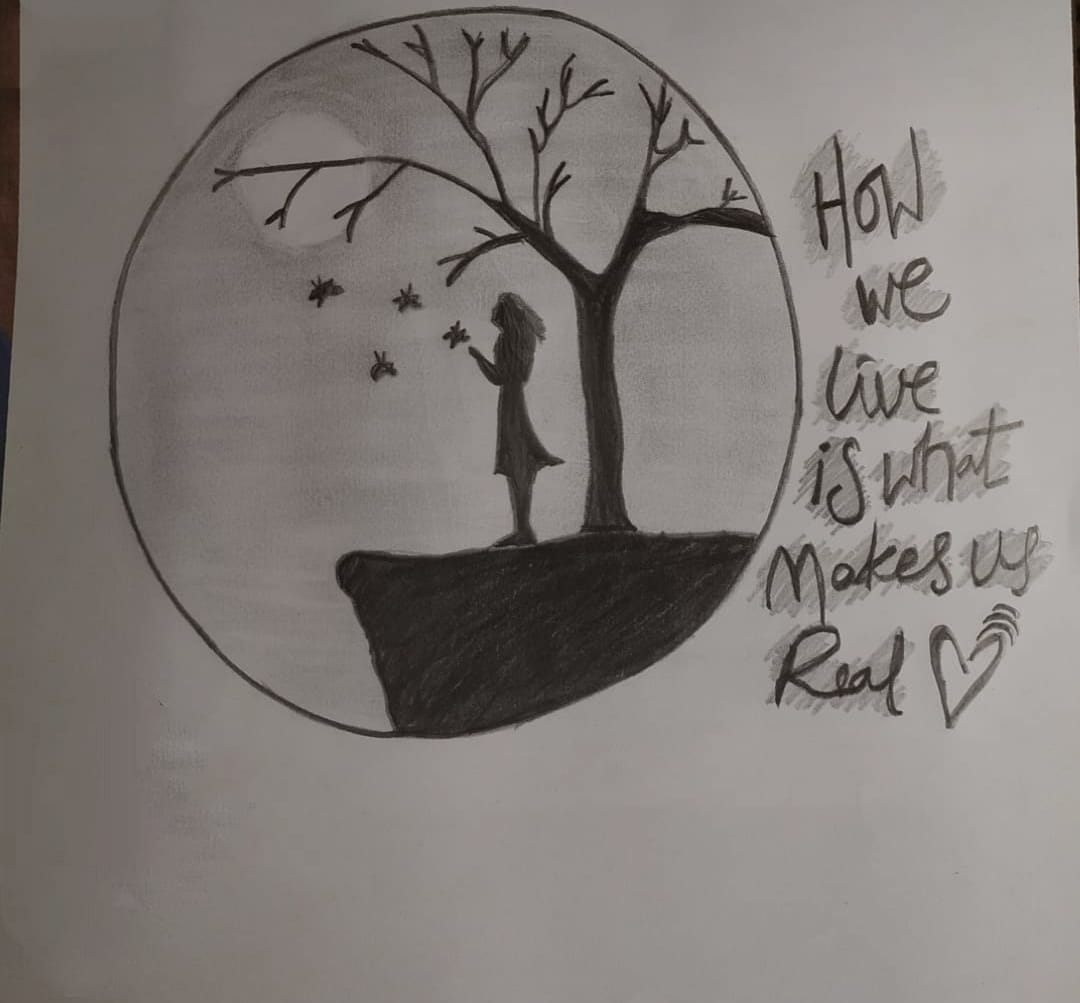 How
we
live
is what
Makes us
Real